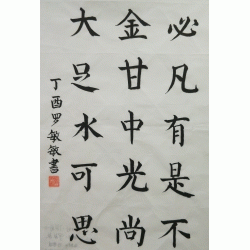 必凡有是不
金甘中光尚
大足水可思
丁酉罗敏敏書